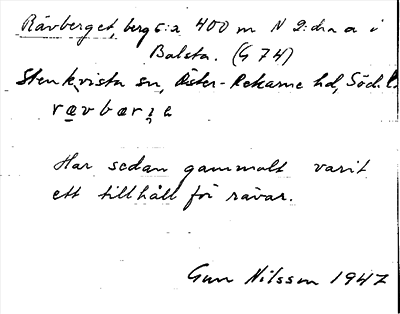 Rävberget, berg c:a 400 m N 2:dra a i
Balsta. (G 74)
Stenkvista sn, Öster-Rekarne hd, Söd. l.
Har sedan gammalt varit
ett tillhåll för rävar.
Gun Nilsson 1947